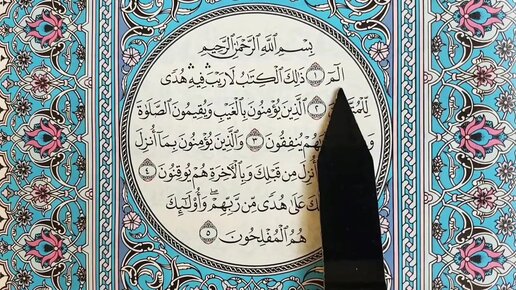 بِسْمِ ٱللَّهِ ٱلرَّحْمَٰنِ ٱلرَّحِيمِ
الٓمٓ ١ ذَٰلِكَ ٱلْكِتَٰبُ لَا رَيْبَ ۛ فِيهِ ۛ هُدًى
٢ ٱلَّذِينَ يُؤْمِنُونَ بِٱلْغَيْبِ وَيُقِيمُونَ ٱلصَّلَوٰةَ
يُنفِقُونَ ٣ وَٱلَّذِينَ يُؤْمِنُونَ بِمَآ أُنزِلَ
مِن قَبْلِكَ وَبِٱلْءَاخِرَةِ هُمْ يُوقِنُونَ ٤
عَلَىٰ هُدًى مِّن رَّبِّهِمْ ۖ وَأُو۟لَٰٓئِكَ
هُمُ ٱلْمُفْلِحُونَ ٥